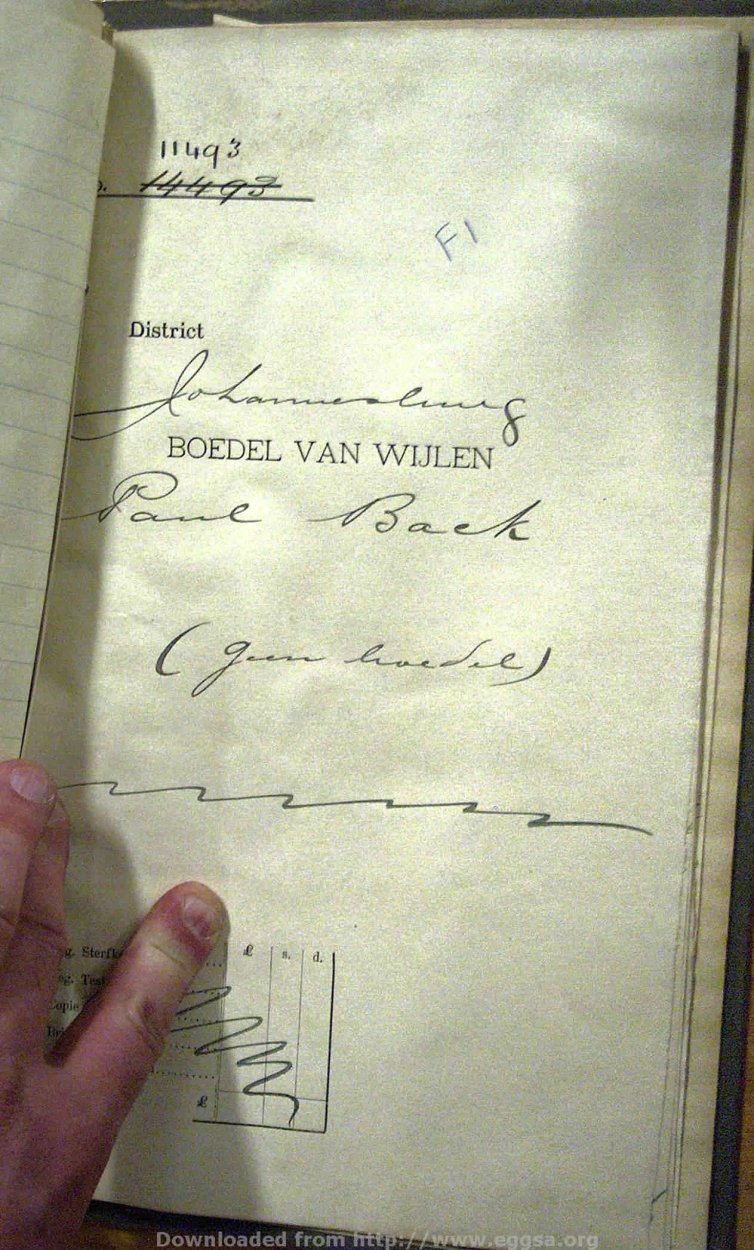 11493
14493
F1
District
Johannesburg
BOEDEL VAN WIJLEN
Paul Back
(geen boedel)
£ s. d.
g. Sterfk
eg. Test
Copie
£
Downloaded from http://www.eggsa.org